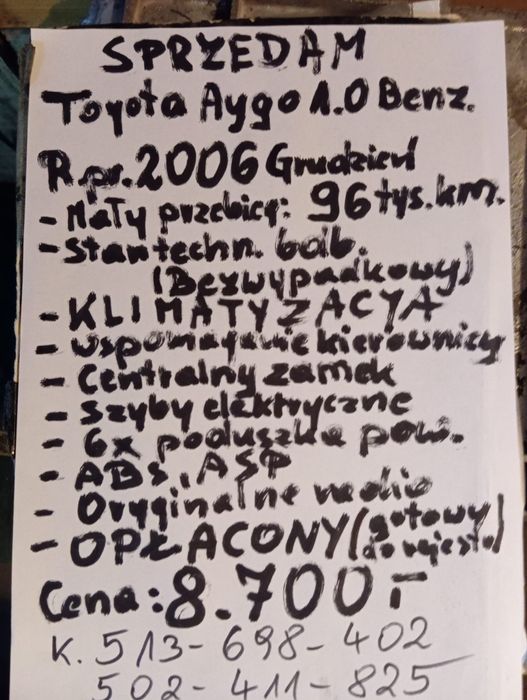 SPRZEDAM
Toyota Aygo 1.0 Benz.
R.pr. 2006 Grudzień
- Mały przebieg: 96 tys. km.
- Stan techn. bdb.
(Bezwypadkowy)
- KLIMATYZACYA
- wspomaganie kierownicy
- Centralny zamek
- Szyby elektryczne
- 6x poduszka pow.
- ABS, ASP
- Oryginalne radio
- OPŁACONY (gotowy
do rejestr.)
Cena: 8.700-
K. 513-698-402
502-411-825